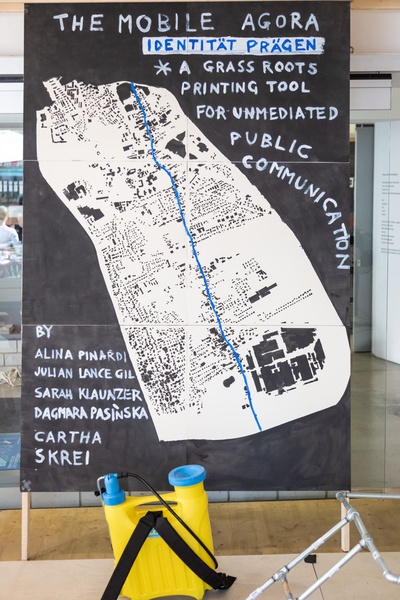 THE MOBILE AGORA
IDENTITÄT PRÄGEN
* A GRASS ROOTS
PRINTING TOOL
FOR UNMEDIATED
PUBLIC
COMMUNICATION
BY
ALINA PINARDI
JULIAN LANCE GIL
SARAH KLAUNZER
DAGMARA PASIŃSKA
CARTHA
SKREI